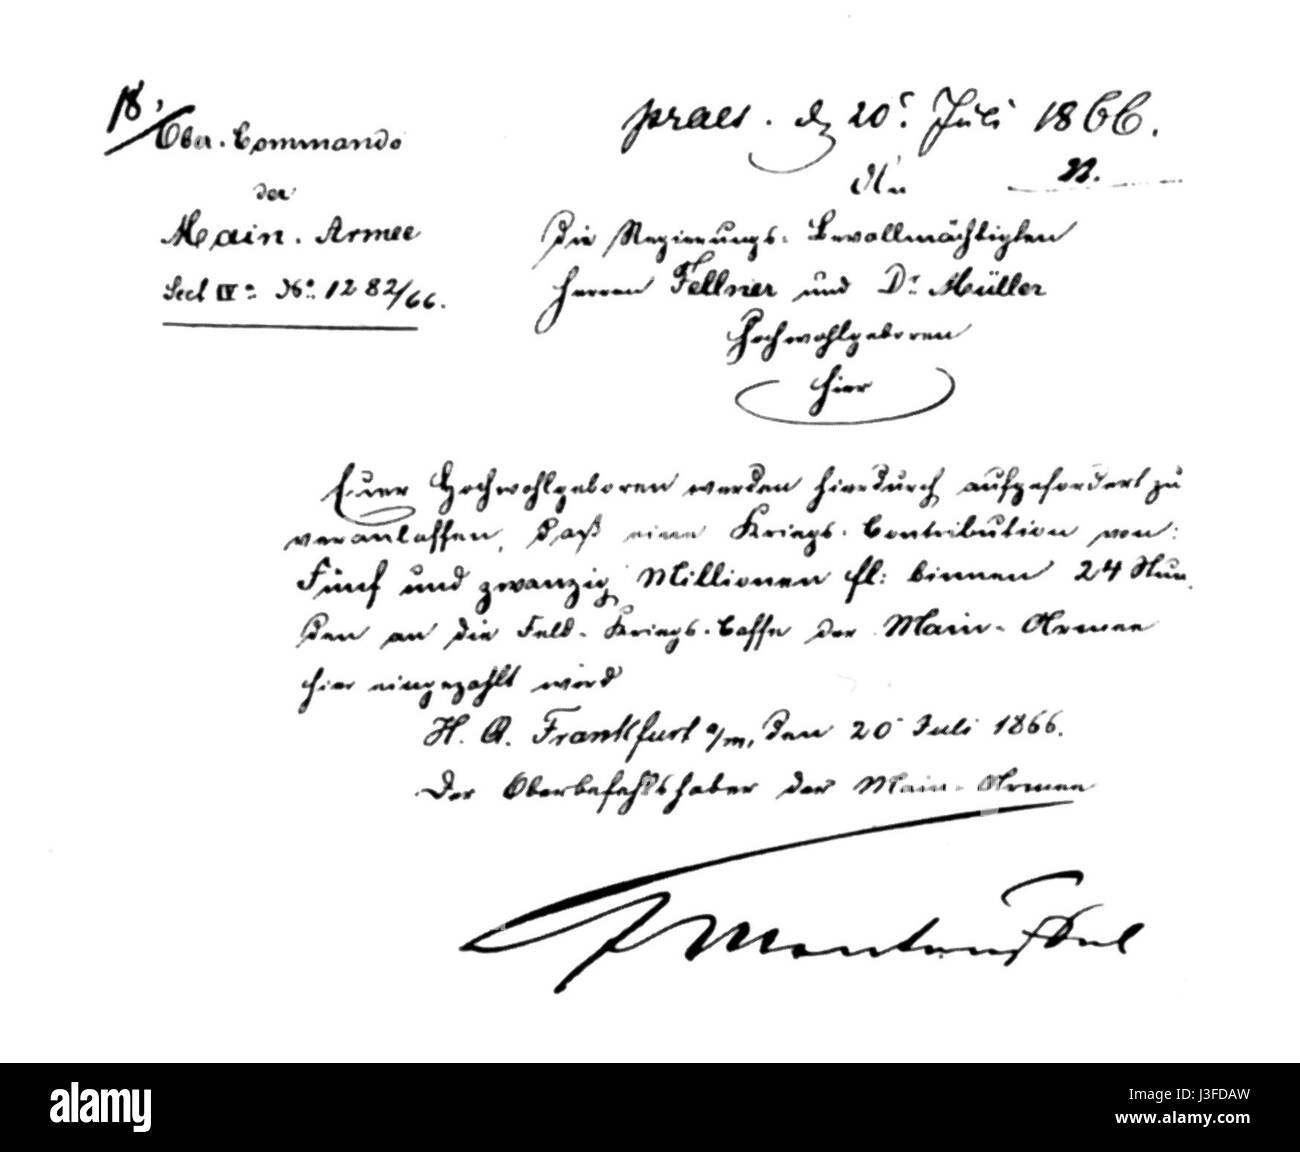 18,
Ober-Commando
der
Main-Armee
Sect IVa No. 1282/66.
praes. d 20t Juli 1866.
An
Die Regierungs-Bevollmächtigten
Herren Fellner und Dr. Müller
Hochwohlgeboren
hier
Euer Hochwohlgeboren werden hierdurch aufgefordert zu
veranlassen, daß eine Kriegs-Contribution von:
Fünf und zwanzig Millionen fl: binnen 24 Stun-
den an die Feld-Kriegs-Casse der Main-Armee
hier eingezahlt wird
H. Q. Frankfurt a/m, den 20 Juli 1866.
Der Oberbefehlshaber der Main-Armee
Manteuffel
alamy
Image ID: J3FDAW
www.alamy.com